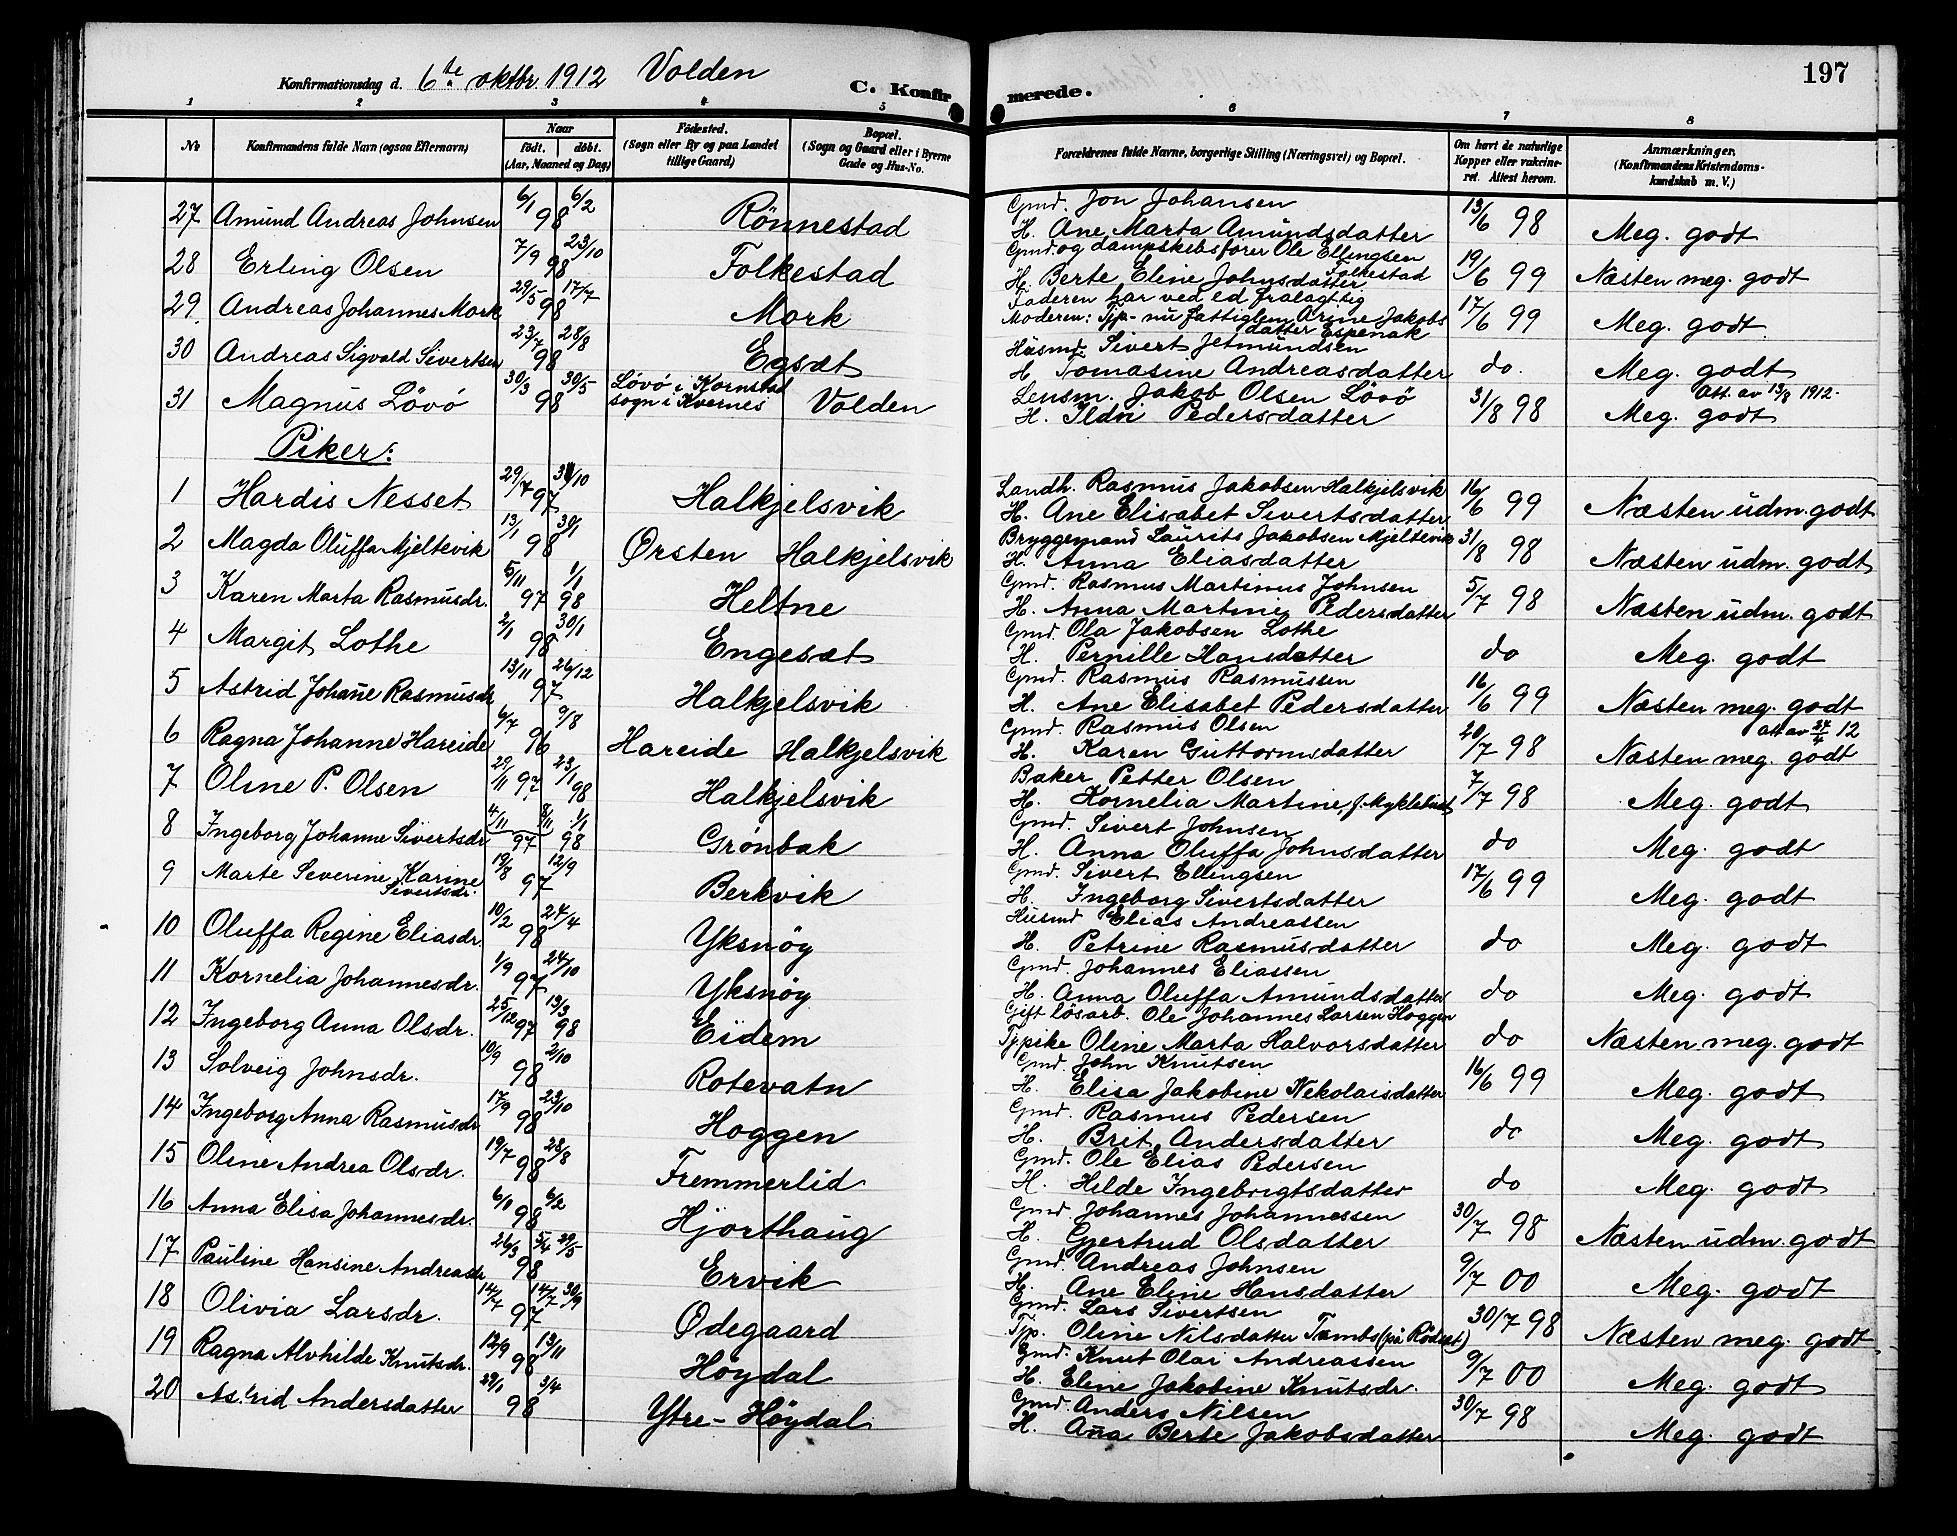 197
Konfirmationsdag d. 6te oktbr. 1912 Volden
C. Konfirmerede.
1 2 3 4 5 6 7 8
No Konfirmandens fulde Navn (ogsaa Efternavn) Naar født. døbt. (Aar, Maaned og Dag) Fødested. (Sogn eller By og paa Landet tillige Gaard) Bopæl. (Sogn og Gaard eller i Byerne Gade og Hus-No. Forældrenes fulde Navne, borgerlige Stilling (Næringsvei) og Bopæl. Om havt de naturlige Kopper eller vakcineret. Attest herom. Anmærkninger. (Konfirmandens Kristendomskundskab m. V.)
27 Amund Andreas Johnsen 6/1 98 6/2 Rönnestad Gmd. Jon Johansen
H. Ane Marta Amundsdatter 13/6 98 Meg. godt
28 Erling Olsen 7/9 98 23/10 Folkestad Gmd. og dampskibsfører Ole Ellingsen Folkestad
H. Berte Eline Johnsdatter 19/6 99 Næsten meg. godt
29. Andreas Johannes Mork 29/5 98 17/7 Mork Faderen har ved ed fralagt sig
Moderen: Tjp- nu fattiglem Arine Jakobsdatter Espenak 17/6 99 Meg. godt
30 Andreas Sigvald Sivertsen 23/7 98 28/8 Egsæt Husmd. Sivert Jetmundsen
H Tomasine Andreasdatter do. Meg. godt
31 Magnus Lövö 30/3 98 30/5 Lövö i Kornstad sogn i Kvernes Volden Lensm. Jakob Olsen Lövö
H. Ildri Pedersdatter 31/8 98 Att. av 13/8 1912. Meg. godt
Piker:
1 Hardis Nesset 29/7 97 31/10 Halkjelsvik Landh. Rasmus Jakobsen Halkjelsvik
H. Ane Elisabet Sivertsdatter 16/6 99 Næsten udm. godt
2 Magda Oluffa Mjeltevik 13/1 98 30/1 Ørsten Halkjelsvik Bryggemand Laurits Jakobsen Mjeltevik
H. Anna Eliasdatter 31/8 98 Næsten udm. godt
3 Karen Marta Rasmusdr. 5/11 97 1/1 98 Heltne Gmd. Rasmus Martinus Johnsen
H. Anna Martine Pedersdatter 5/7 98 Næsten udm. godt
4 Margit Lothe 2/1 98 30/1 Engesæt Gmd. Ola Jakobsen Lothe
H. Pernille Hansdatter do Meg. godt
5 Astrid Johanne Rasmusdr. 13/11 97 26/12 Halkjelsvik Gmd. Rasmus Rasmussen
H. Ane Elisabet Pedersdatter 16/6 99 Næsten meg. godt
6 Ragna Johanne Hareide 6/7 96 9/8 Hareide Halkjelsvik Gmd. Rasmus Olsen
H. Karen Guttormsdatter 20/7 98 Att av 27/4 12 Næsten meg. godt
7 Oline P. Olsen 29/11 97 23/1 98 Halkjelsvik Baker Petter Olsen
H. Kornelia Martine, f. Myklebust 7/7 98 Meg. godt
8 Ingeborg Johanne Sivertsdr. 4/11 97 8/11 1/1 98 Grönbak Gmd. Sivert Johnsen
H. Anna Oluffa Johnsdatter do Meg. godt
9 Marte Severine Karine Sivertsdr. 19/8 97 12/9 Berkvik Gmd. Sivert Ellingsen
H. Ingeborg Sivertsdatter 17/6 99 Meg. godt
10 Oluffa Regine Eliasdr. 10/2 98 24/4 Yksnöy Husmd Elias Andreassen
H. Petrine Rasmusdatter do Meg. godt
11 Kornelia Johannesdr. 1/9 97 24/10 Yksnöy Gmd. Johannes Eliassen
H. Anna Oluffa Amundsdatter do Meg. godt
12 Ingeborg Anna Olsdr. 25/12 97 13/3 98 Eidem Gift lösarb. Ole Johannes Larsen Hoggen
Tjpike Oline Marta Halvorsdatter do Næsten meg. godt
13 Solveig Johnsdr. 10/9 98 2/10 Rotevatn Gmd. John Knutsen
H. Elisa Jakobine Nekolaisdatter 16/6 99 Meg. godt
14 Ingeborg Anna Rasmusdr 17/9 98 23/10 Hoggen Gmd. Rasmus Pedersen
H. Bret Andersdatter do Meg. godt
15 Oline Andrea Olsdr. 19/7 98 28/8 Fremmerlid Gmd. Ole Elias Pedersen
H. Hilde Ingebrigtsdatter do Meg. godt
16 Anna Elisa Johannesdr. 6/1 98 6/2 Hjorthaug Gmd Johannes Johannessen
H. Gjertrud Olsdatter 30/7 98 Næsten udm. godt
17 Pauline Hansine Andreasdr 26/3 98 5/4 29/5 Ervik Gmd. Andreas Johnsen
H. Ane Eline Hansdatter 9/7 00 Meg. godt
18 Olivia Larsdr. 14/7 97 14/7 30/9 Ödegaard Gmd. Lars Sivertsen
Tjp. Oline Nilsdatter Tombs (på Rödset) 30/7 98 Næsten meg. godt
19 Ragna Alvhilde Knutsdr. 12/9 98 13/11 Höydal Gmd. Knut Olai Andreassen
H. Eline Jakobine Knutsdr. 9/7 00 Meg. godt
20 Astrid Andersdatter 29/1 98 3/4 Ytre-Höydal Gmd. Anders Nilsen
H. Anna Berte Jakobsdatter 30/7 98 Meg. godt